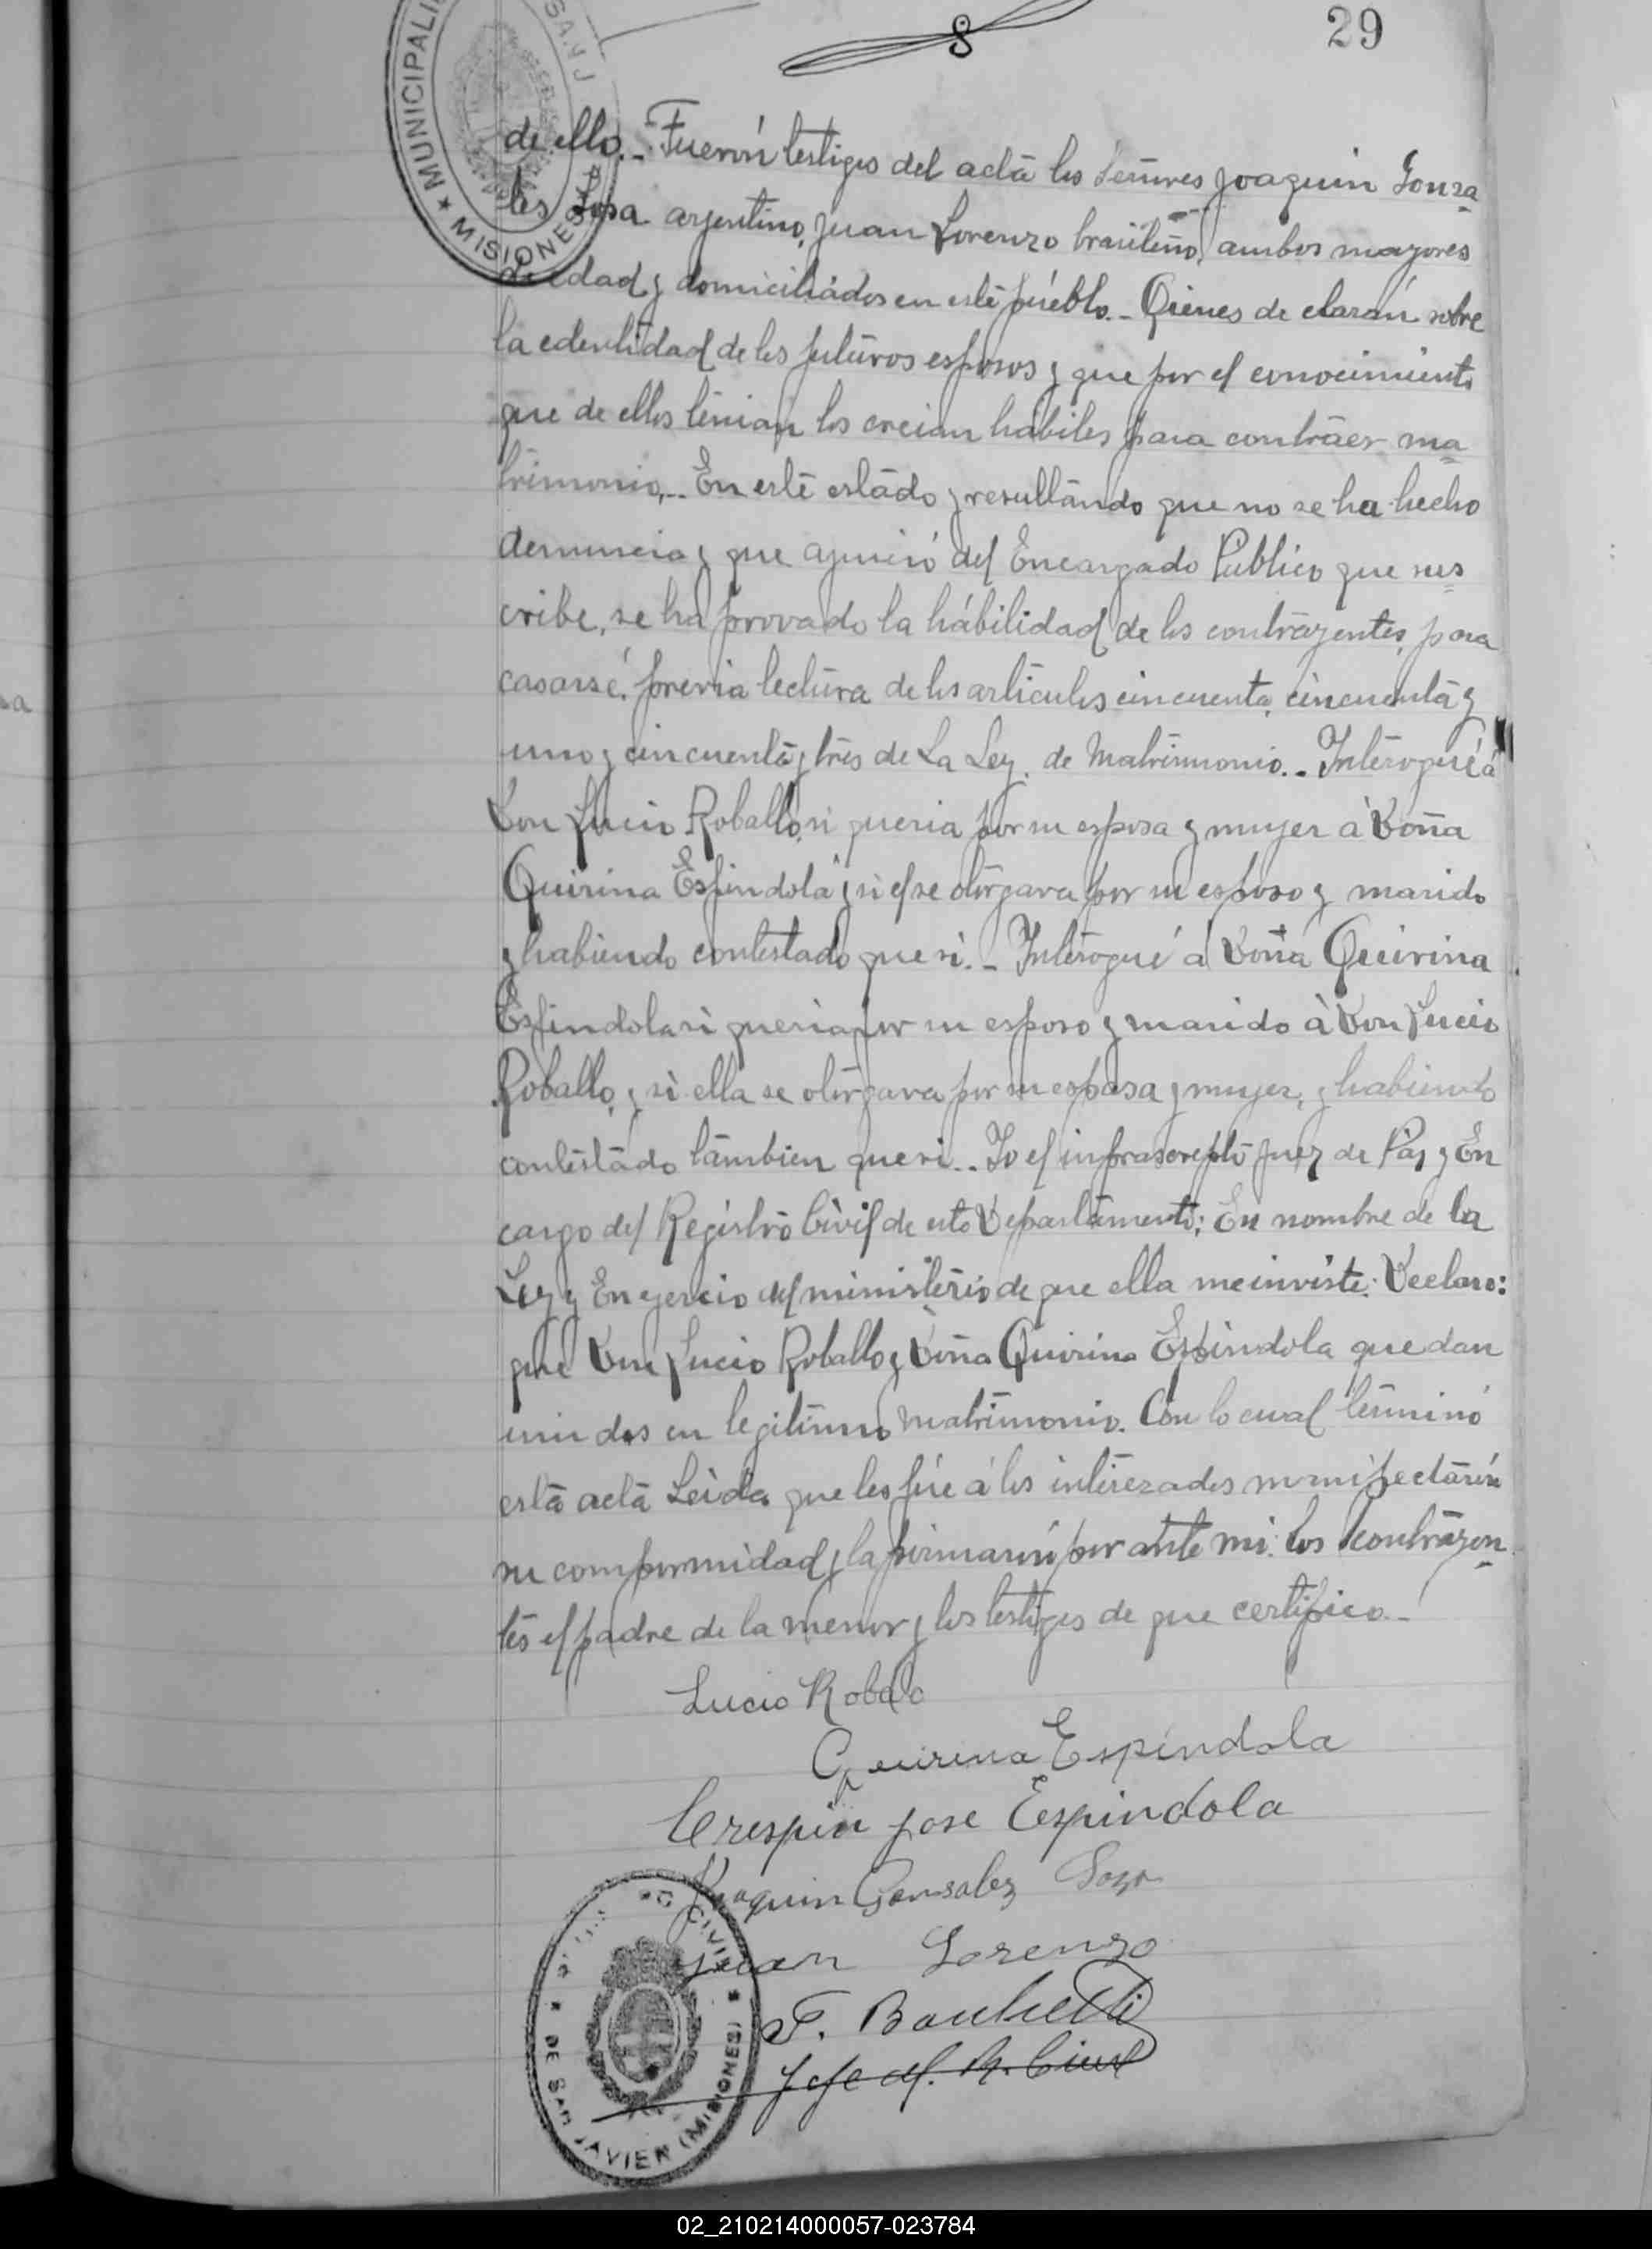 29
MUNICIPALI SAN J
★ MISIONES ★
de ello.- Fuerón testigos del acta los Señores Joaquin Gonza
les Sosa argentino, Juan Lorenzo brasileño, ambos mayores
de edad y domiciliados en este puéblo.- Qienes de claran sobre
la edentidad de los futuros esposos y que por el conocimiento
que de ellos tenian los creian habiles para contraer ma
trimonio,.- En este estado y resultando que no se ha hecho
denuncia y que ajuició del Encargado Publico que sus
cribe, se ha provado la hábilidad de los contrayentes, para
casarsé, previa lectura de los articulos cincuenta, cincuenta y
uno y cincuenta y tres de La Ley, de Matrimonio.- Interogué á
Don Lucio Roballo, si queria por su esposa y mujer a Doña
Quirina Espindola y si el se otorgava por su esposo y marido
y habiendo contestado que si.- Interogué á Doña Quirina
Espindola si queria por su esposo y marido à Don Lucio
Roballo, y si ella se otorgava por su esposa y mujer, y habiendo
contestado tambien que si.- Yo el infrascripto Juez de Páz y En
cargo del Registro Civil de este Departamento; En nombre de la
Ley y En ejercio del ministerio de que ella me inviste: Declaro:
que Don Lucio Roballo y Doña Quirina Espindola quedan
unidos en legitimo matrimonio. Con lo cual terminó
esta acta Leida que les fúe á los interezados manifectarón
su comformidad y la firmarón por ante mi: los contrayen
tes el padre de la menor y los testigos de que certifico.-
Lucio Robalo
Quirina Espindola
Crespin jose Espindola
Joaquin Gonsalez Sosa
Juan Lorenzo
Jefe del R. Civil
O CIVIL
★ DE SAN JAVIER (MISIONES) ★
02_210214000057-023784